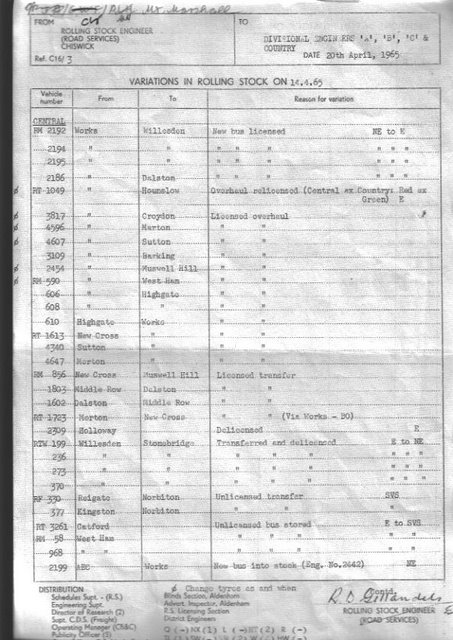 Mr Marshall
FROM
ROLLING STOCK ENGINEER
(ROAD SERVICES)
CHISWICK
Ref. C16/ 3
TO
DIVISIONAL ENGINEERS 'A', 'B', 'C' &
COUNTRY
DATE 20th April, 1965
VARIATIONS IN ROLLING STOCK ON 14.4.65
Vehicle number From To Reason for variation
CENTRAL
RM 2192 Works Willesden New bus licensed NE to E
2194 " " " " " " " "
2195 " " " " " " " "
2186 " Dalston " " " " " "
ø RT 1049 " Hounslow Overhaul relicensed (Central ex Country: Red ex
Green) E
ø 3817 " Croydon Licensed overhaul
ø 4596 " Merton " "
ø 4607 " Sutton " "
3109 " Barking " "
ø 2454 " Muswell Hill " "
ø RM 590 " West Ham " "
606 " Highgate " "
608 " " " "
610 Highgate Works " "
RT 1613 New Cross " " "
4340 Sutton " " "
4647 Merton " " "
RM 856 New Cross Muswell Hill Licensed transfer
1803 Middle Row Dalston " "
1602 Dalston Middle Row " "
RT 1723 Merton New Cross " " (Via Works - BO)
2309 Holloway Delicensed E
RTW 199 Willesden Stonebridge Transferred and delicensed E to NE
236 " " " " " " " "
273 " " " " " " " "
370 " " " " " " " "
RF 330 Reigate Norbiton Unlicensed transfer SVS
377 Kingston Norbiton " " "
RT 3261 Catford Unlicensed bus stored E to SVS
RM 58 West Ham " " " " " "
968 " " " " " " " "
2199 AEC Works New bus into stock (Eng. No.2642) NE
DISTRIBUTION
Schedules Supt. - (R.S.)
Engineering Supt.
Director of Research (2)
Supt. C.D.S. (Freight)
Operating Manager (CB&C)
Publicity Officer (3)
ø Change tyres as and when
Blinds Section, Aldenham
Advert. Inspector, Aldenham
R.S. Licensing Section
District Engineers
contd.
ROLLING STOCK ENGINEER